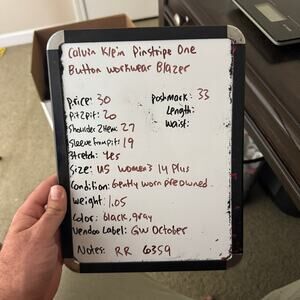 Calvin Klein Pinstripe One
Button workwear Blazer
Price: 30
Poshmark: 33
Pit2Pit: 20
Length:
Shoulder 2 Hem: 27
Waist:
Sleeve from pit: 19
Stretch: Yes
Size: US Women's 14 Plus
Condition: Gently worn preowned
Weight: 1.05
Color: black, gray
Vendoo Label: GW October
Notes: RR 6359